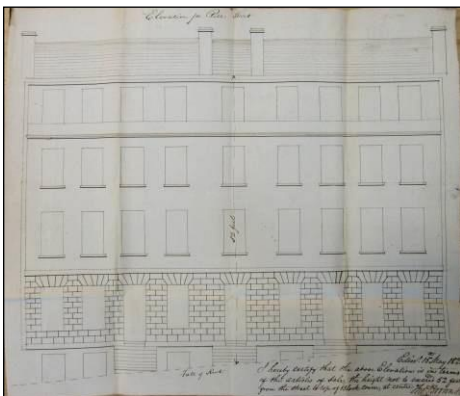 Elevation for Street
52 feet
Fall of Street
Edinr May 18
I hereby certify that the above Elevation is in terms
of the articles of sale, the height not to exceed 52 feet
from the street to top of at centre